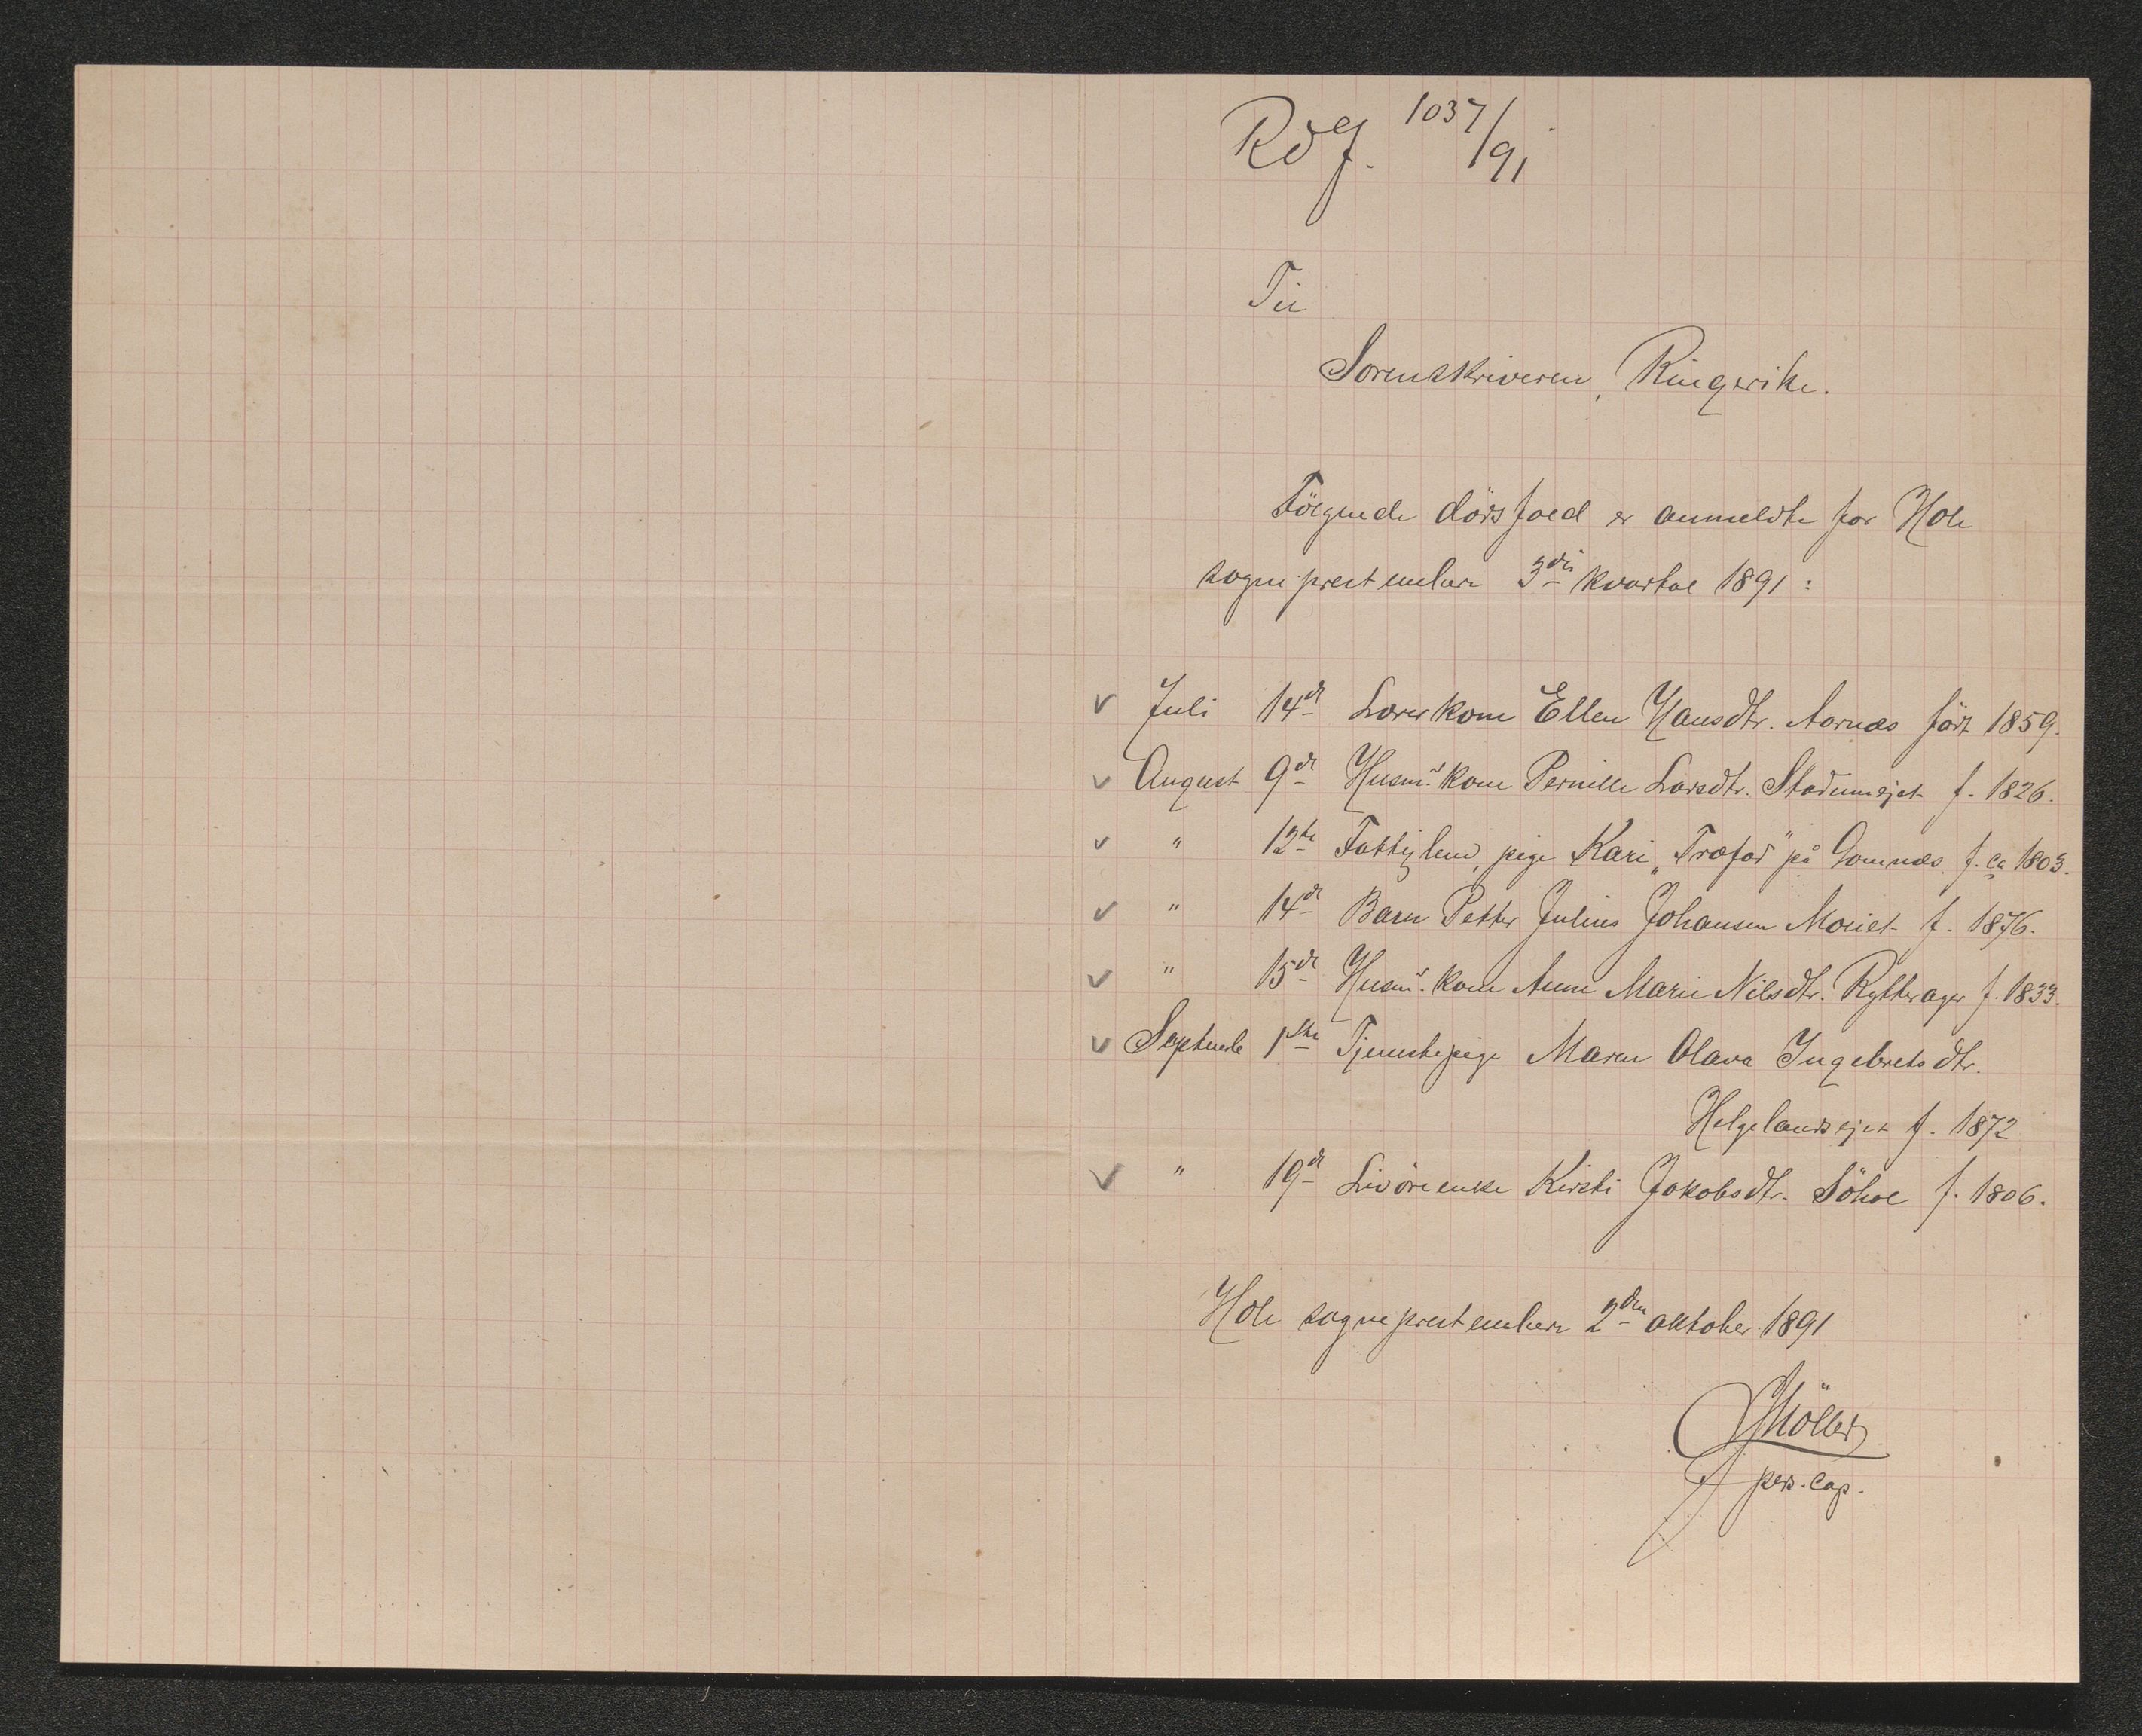 RdJ. 1037/91
Til
Sorenskriveren, Ringerike.
Følgende dødsfald er anmeldte for Hole
sogneprestembede 3die kvartal 1891:
✓ Juli 14de Lærerkone Ellen Hansdtr. Aarnæs født 1859.
✓ August 9de Husmds kone Pernille Larsdtr. Stadumejet f. 1826.
✓ " 12te Fattiglem, pige Kari „Træfod" på Gomnæs f. ca 1803.
✓ " 14de Barn Petter Julius Johansen Moriet f. 1876.
✓ " 15de Husms. kone Anne Marie Nilsdtr. Rytterager f. 1833.
✓ Septembr 1ste Tjenestepige Maren Olava Ingebretsdtr.
Helgelandsejet f. 1872
✓ " 19de Livøreenke Kirsti Jakobsdtr. Söhol f. 1806.
Hole sogneprestembede 2den oktober 1891
Möller
pers. cap.